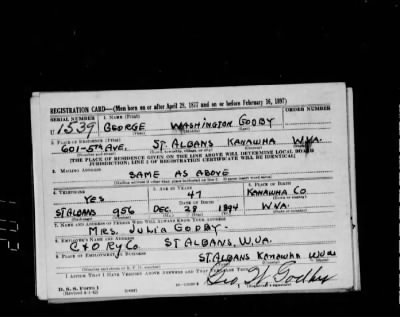 REGISTRATION CARD—(Men born on or after April 28, 1877 and on or before February 16, 1897)
SERIAL NUMBER 1. NAME (Print) ORDER NUMBER
U 1539 GEORGE WASHINGTON GODBY
(First) (Middle) (Last)
2. PLACE OF RESIDENCE (Print)
601-5th AVE. ST. ALBANS KANAWHA W.VA.
(Number and street) (Town, township, village, or city) (County) (State)
[THE PLACE OF RESIDENCE GIVEN ON THE LINE ABOVE WILL DETERMINE LOCAL BOARD
JURISDICTION; LINE 2 OF REGISTRATION CERTIFICATE WILL BE IDENTICAL]
3. MAILING ADDRESS
SAME AS ABOVE
4. TELEPHONE 5. AGE IN YEARS 6. PLACE OF BIRTH
YES 47 KANAWHA CO
DATE OF BIRTH
ST ALBANS 956 DEC. 28 1894 W.VA.
7. NAME AND ADDRESS OF PERSON WHO WILL ALWAYS KNOW YOUR ADDRESS
MRS. JULIA GODBY-
8. EMPLOYER'S NAME AND ADDRESS
C+O RY CO. ST ALBANS, W.VA.
9. PLACE OF EMPLOYMENT OR BUSINESS
ST ALBANS KANAWHA W.VA.
I AFFIRM THAT I HAVE VERIFIED ABOVE ANSWERS AND THAT THEY ARE TRUE.
D. S. S. Form 1
(Revised 4-1-42)
Geo. W. Godby